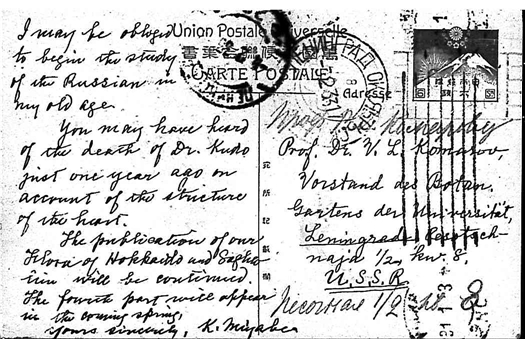 I may be obliged
to begin the study
of the Russian in
my old age.
You may have heard
of the death of Dr. Kudo
just one year ago on
account of the stricture
of the heart.
The publication of our
Flora of Hokkaido and Saghalien
will be continued.
The fourth part will appear
in the coming spring.
Yours sincerely, K. Miyabe
Union Postale Universelle
CARTE POSTALE
Adresse
Prof. Dr. V. L. Komarov,
Vorstand des Botan.
Gartens der Universität,
Leningrad,
naja 1/2, kw. 8.
U.S.S.R.
1/2 8